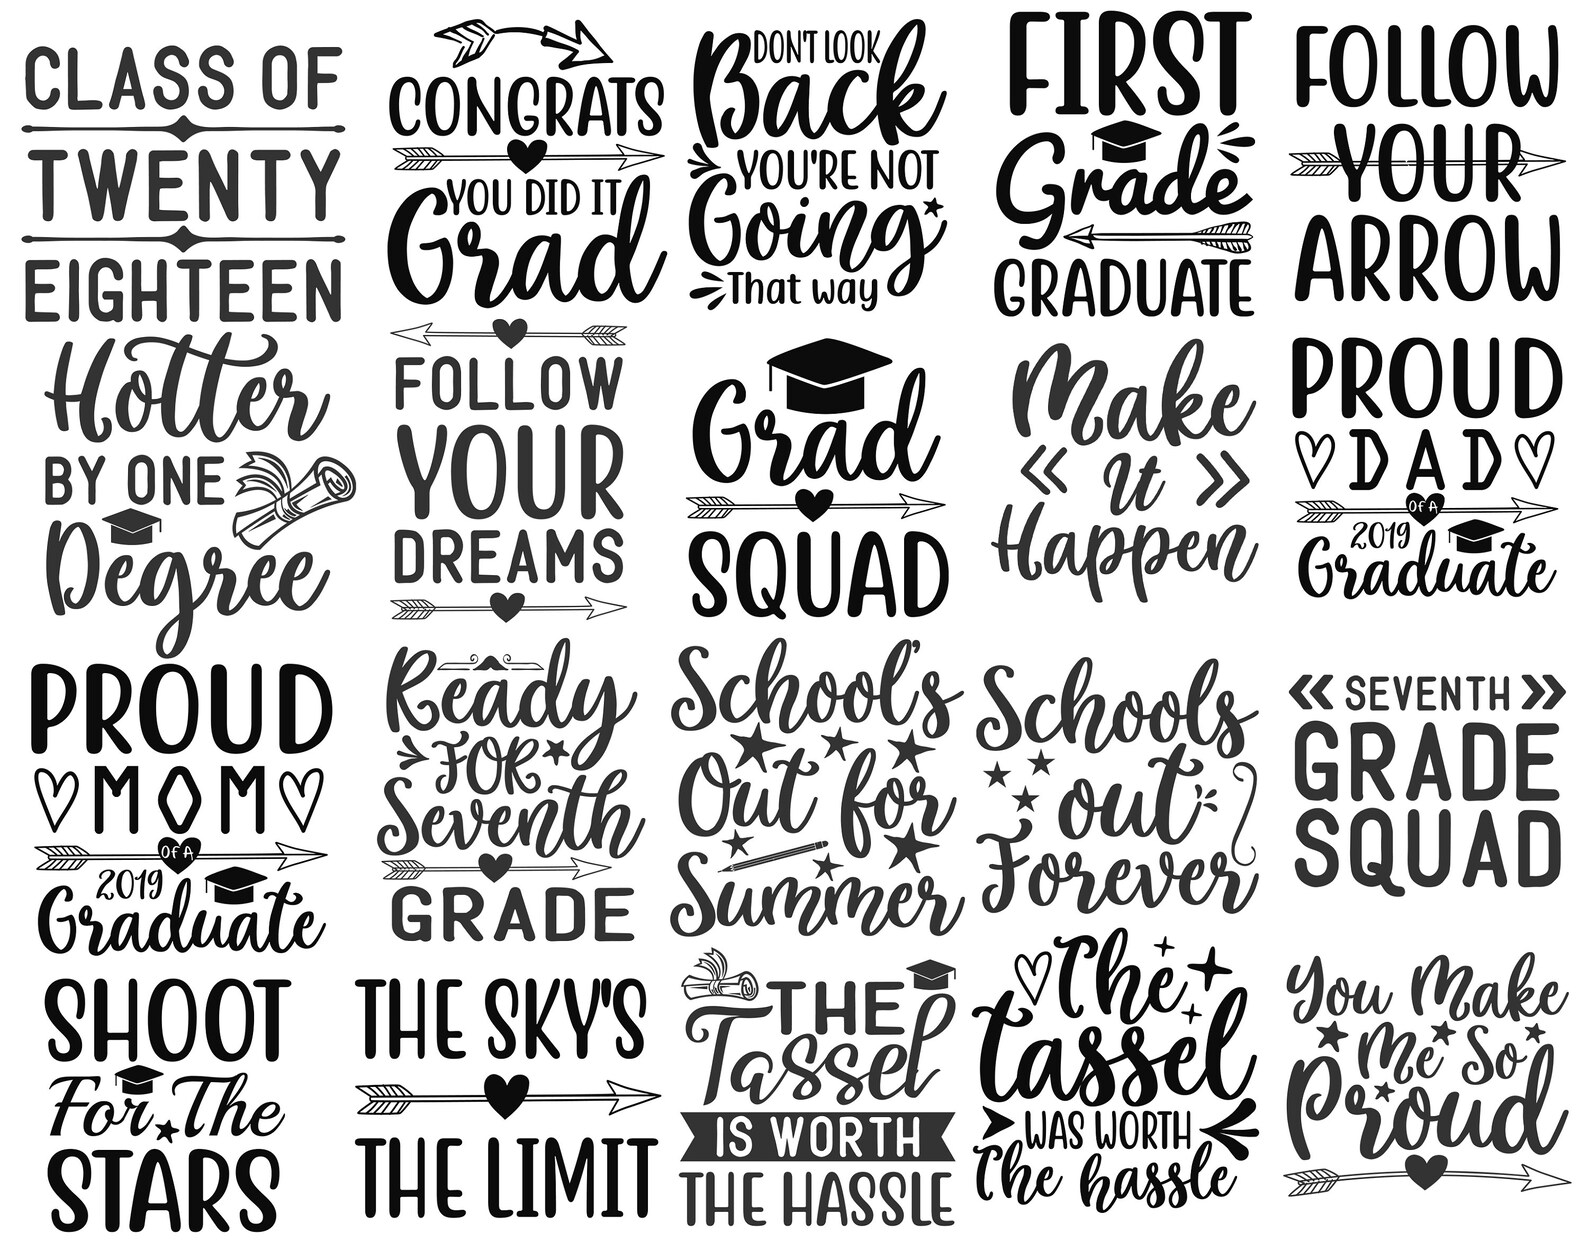 CLASS OF
TWENTY
EIGHTEEN
CONGRATS
YOU DID IT
Grad
DON'T LOOK
Back
YOU'RE NOT
Going
That way
FIRST
Grade
GRADUATE
FOLLOW
YOUR
ARROW
Hotter
BY ONE
Degree
FOLLOW
YOUR
DREAMS
Grad
SQUAD
Make
It
Happen
PROUD
DAD
OF A
2019
Graduate
PROUD
MOM
OF A
2019
Graduate
Ready
FOR
Seventh
GRADE
School's
Out for
Summer
Schools
out
Forever
SEVENTH
GRADE
SQUAD
SHOOT
For The
STARS
THE SKY'S
THE LIMIT
THE
Tassel
IS WORTH
THE HASSLE
The
tassel
WAS WORTH
The hassle
You Make
Me So
Proud